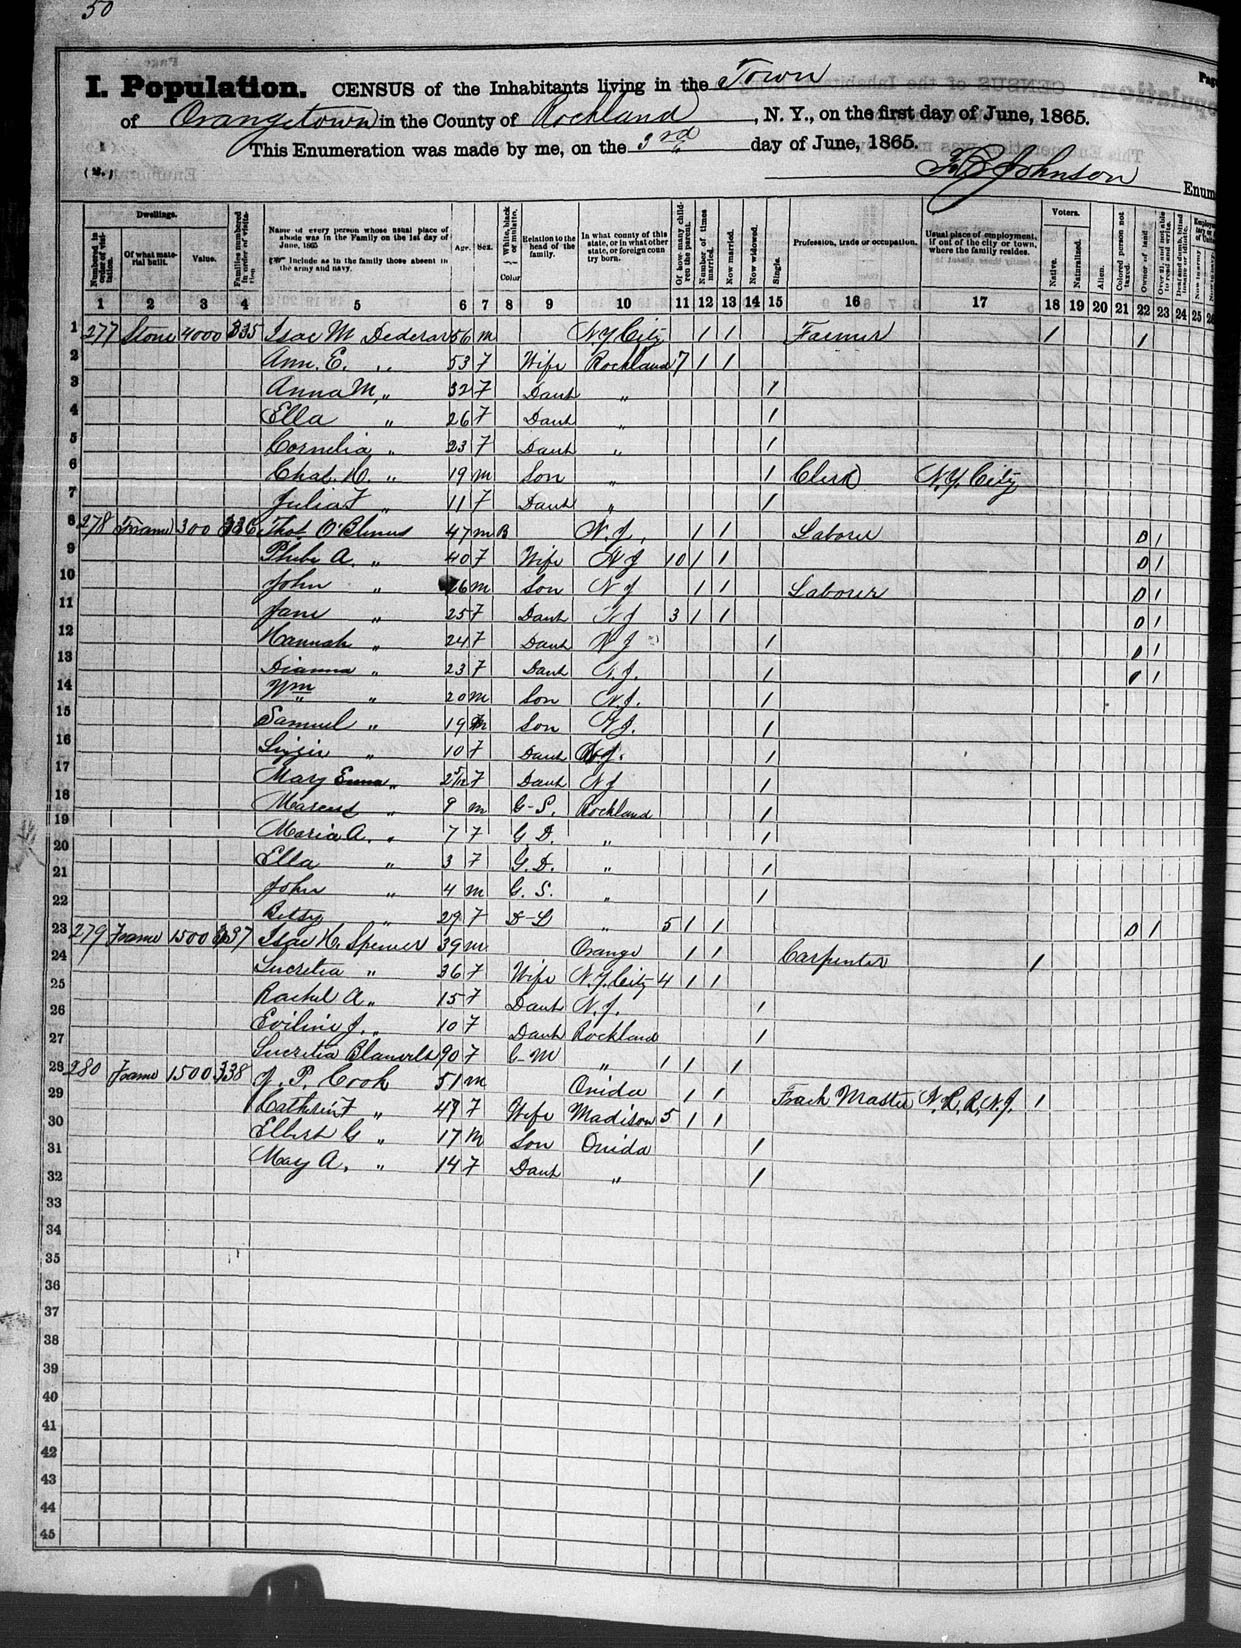 50
I. Population. CENSUS of the Inhabitants living in the Town
of Orangetown in the County of Rockland, N. Y., on the first day of June, 1865.
This Enumeration was made by me, on the 3rd day of June, 1865.
Johnson Enum
Dwellings.
Numbered in order of visitation.
Of what material built.
Value.
Families numbered in order of visitation
Name of every person whose usual place of abode was in the Family on the 1st day of June, 1865
Include as in the family those absent in the army and navy.
Age.
Sex.
White, black or mulatto.
Color
Relation to the head of the family.
In what county of this state, or in what other state, or foreign country born.
Of how many children the parent.
Number of times married.
Now married.
Now widowed.
Single.
Profession, trade or occupation.
Usual place of employment, if out of the city or town, where the family resides.
Voters.
Native.
Naturalized.
Alien.
Colored person not taxed.
Owner of land
Over 21, and not able to read and write.
Deaf and dumb, blind insane or idiotic.
1 2 3 4 5 6 7 8 9 10 11 12 13 14 15 16 17 18 19 20 21 22 23 24 25 26
1 277 Stone 4000 335 Isac M Dederar 56 m N Y City 1 1 Farmer 1 1
2 Ann. E. „ 53 F Wife Rockland 7 1 1
3 Anna M. „ 32 F Dauh „ 1
4 Ella „ 26 F Dauh „ 1
5 Cornelia „ 23 F Dauh „ 1
6 Chas. H. „ 19 m Son „ 1 Clerk N.Y. City
7 Julia F „ 11 F Dauh „ 1
8 278 Frame 300 336 Thos 47 m B N.J. 1 1 Laborer 0 1
9 Phebe A. „ 40 F Wife N J 10 1 1 0 1
10 John „ 26 m Son N J 1 1 Laborer 0 1
11 Jane „ 25 F Dauh N J 3 1 1 0 1
12 Hannah „ 24 F Dauh N J 1 0 1
13 Dianna „ 23 F Dauh N.J. 1 0 1
14 Wm „ 20 m Son N.J. 1
15 Samuel „ 19 m Son N J. 1
16 Lizzie „ 10 F Dauh N.J. 1
17 Mary Emma „ 2 5/12 F Dauh N J 1
18 „ 9 m G-S. Rockland 1
19 Maria A. „ 7 F G D. „ 1
20 Ella „ 3 F G.D. „ 1
21 John „ 4 m G. S. „ 1
22 Betsy „ 29 F D-L „ 5 1 1 0 1
23 279 Frame 1500 337 Isac H. Spencer 39 m Orange 1 1 Carpenter 1
24 Lucretia „ 36 F Wife N.Y. City 4 1 1
25 Rachel A. „ 15 F Dauh N.J. 1
26 Eviline J. „ 10 F Dauh Rockland 1
27 Lucretia Blauvelt 90 F G-M „ 1 1 1
28 280 Frame 1500 338 J. P. Cook 51 m Onida 1 1 Track Master N.R.R, N.J. 1
29 Catherin F „ 47 F Wife Madison 5 1 1
30 Elbert G „ 17 m Son Onida 1
31 May A. „ 14 F Dauh „ 1
32
33
34
35
36
37
38
39
40
41
42
43
44
45